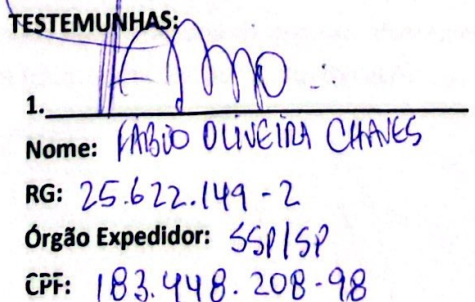 TESTEMUNHAS:
1.
Nome: FÁBIO OLIVEIRA CHAVES
RG: 25.622.149-2
Órgão Expedidor: SSP/SP
CPF: 183.448.208-98